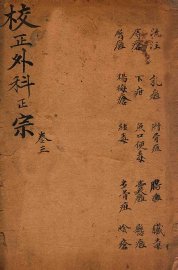 流注 乳癰 附骨疽 腸癰 臟毒
痔瘡 下疳 魚口便毒 囊癰 懸癰
臀癰 楊梅瘡 結毒 多骨疽
校正外科正宗
卷三